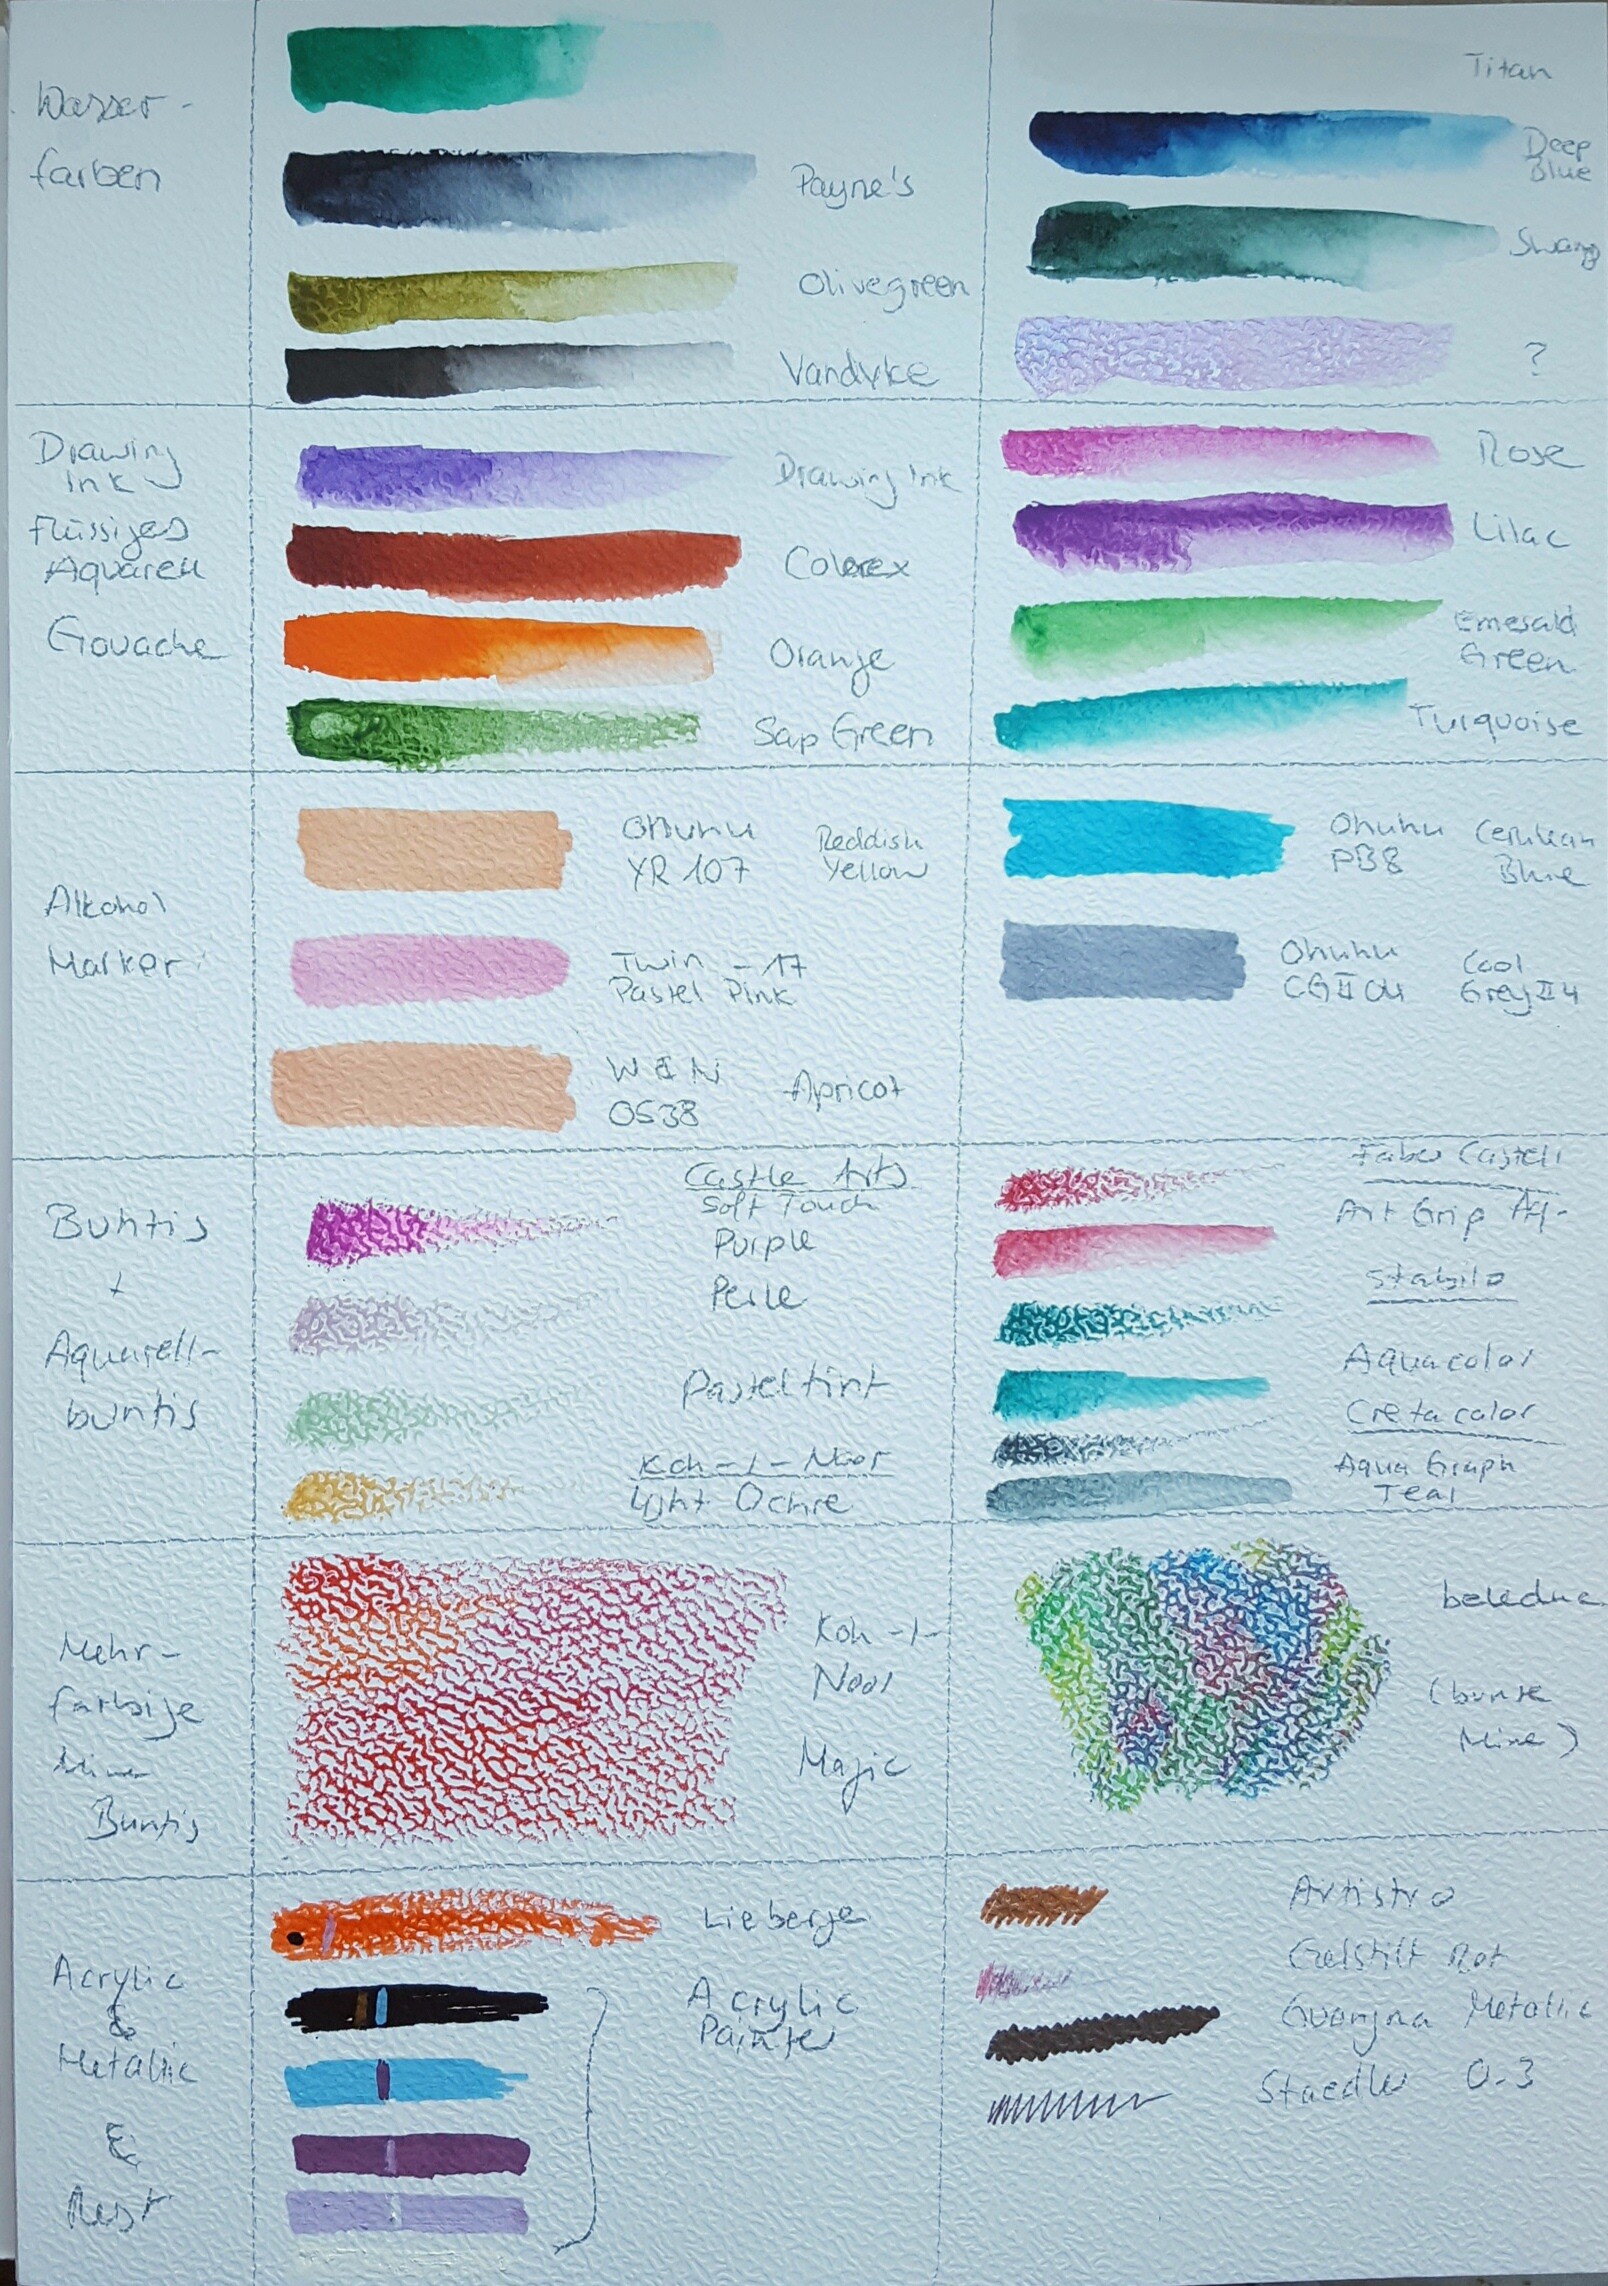 Wasser-
farben
Payne's
Olivegreen
Vandyke
Titan
Deep
Blue
?
Drawing
Ink
Flüssiges
Aquarell
Gouache
Drawing Ink
Colorex
Orange
Sap Green
Rose
Lilac
Emerald
Green
Turquoise
Alkohol
Marker
Ohuhu Reddish
YR 107 Yellow
Twin - 17
Pastel Pink
W & N
0538 Apricot
Ohuhu Cerulean
PB8 Blue
Ohuhu Cool
CGII04 Grey II 4
Buntis
+
Aquarell-
buntis
Castle Arts
Soft Touch
Purple
Perle
Pasteltint
Koh-I-Noor
Light Ochre
Faber Castell
Art Grip Aq-
Stabilo
Aquacolor
Cretacolor
Aqua Graph
Teal
Mehr-
farbige
Minen
Buntis
Koh-I-
Noor
Magic
(bunte
Mine)
Acrylic
&
Metallic
&
Rest
Acrylic
Painter
Artistro
Gelstift Rot
Metallic
Staedler 0.3